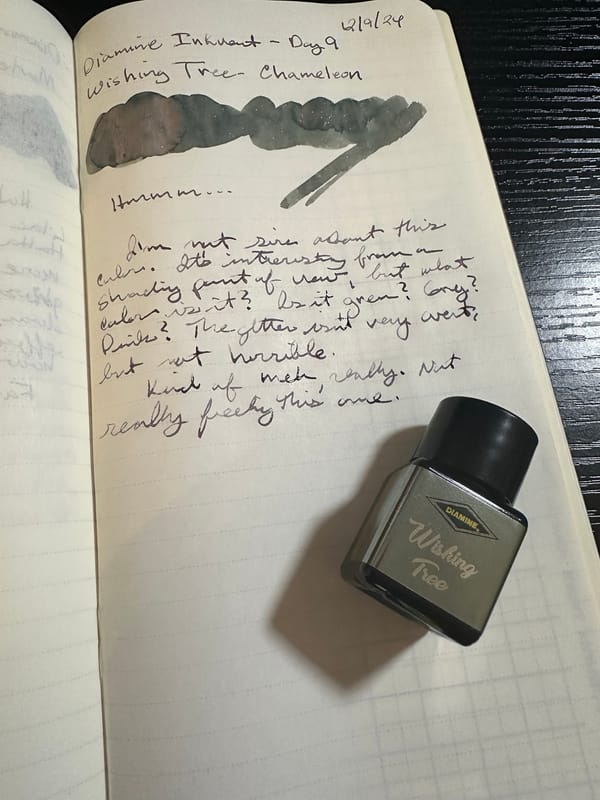 12/9/24
Diamine Inkvent - Day 9
Wishing Tree - Chameleon
Hmmmm...
I'm not sure about this
color. It's interesting from a
shading point of view, but what
color is it? Is it green? Grey?
Pink? The glitter isn't very overt,
but not horrible.
Kind of meh, really. Not
really feeling this one.
DIAMINE
Wishing
Tree